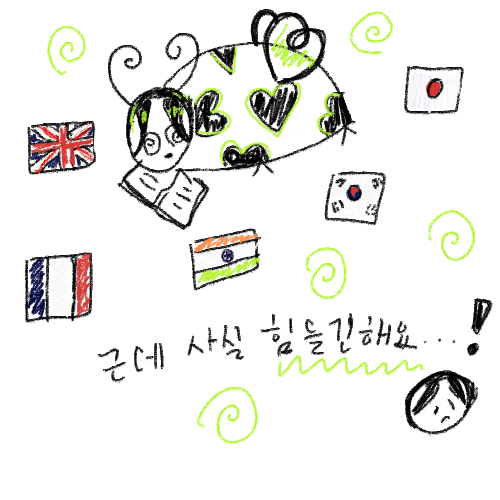 근데 사실 힘들긴해요...!